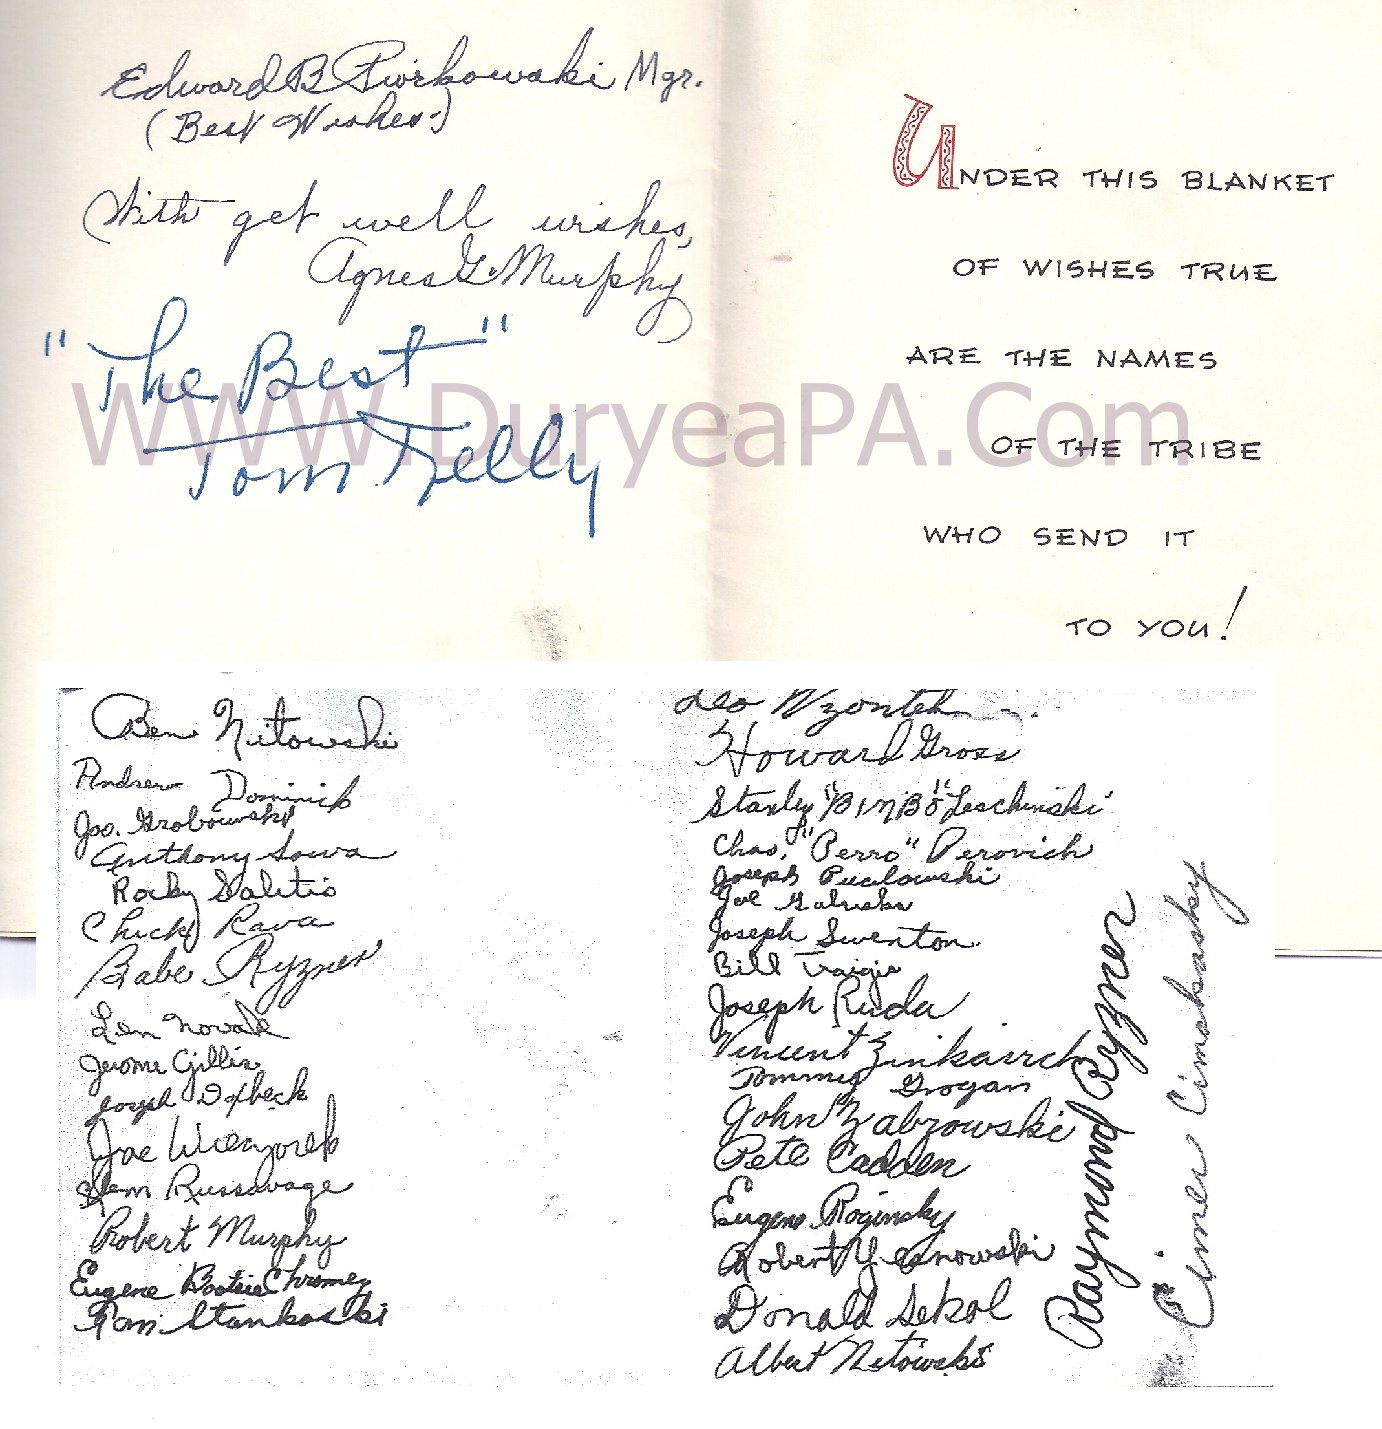 Edward B Pwirkowski Mgr.
(Best Wishes-)
With get well wishes,
Agnes G. Murphy
"The Best"
Tom
UNDER THIS BLANKET
OF WISHES TRUE
ARE THE NAMES
OF THE TRIBE
WHO SEND IT
TO YOU!
WWW.DuryeaPA.Com
Ben Nitowski
Andrew Dominick
Jos. Grabowski
Anthony Sowa
Rocky
Chick Rava
Babe Ryzner
Len Novak
Jerome Gillis
Joseph
Joe Wienzorek
Russavage
Robert Murphy
Eugene Bootsie Chromey
Tom Stankoski
Leo Wzontek
Howard Gross
Stanley "BIMBO" Leschinski
Chas. "Perro" Perovich
Joseph Puclowski
Joe
Joseph Swenton
Bill Traigis
Joseph Ruda
Vincent Zinkavich
Tommy Grogan
John Zabrowski
Pete Cadden
Eugene Roginsky
Robert Yesnowski
Donald Sekol
Albert Nitowski
Raymond Ryzner
Elmer Cimakasky